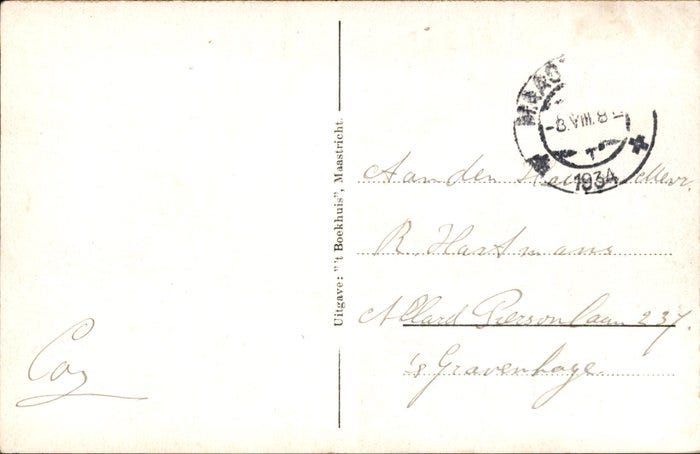 MAAS
-8.VIII.8
1934
Aan den Heer en Mevr.
R. Hartmans
Allard Piersonlaan 237.
's Gravenhage.
Uitgave: "'t Boekhuis", Maastricht.